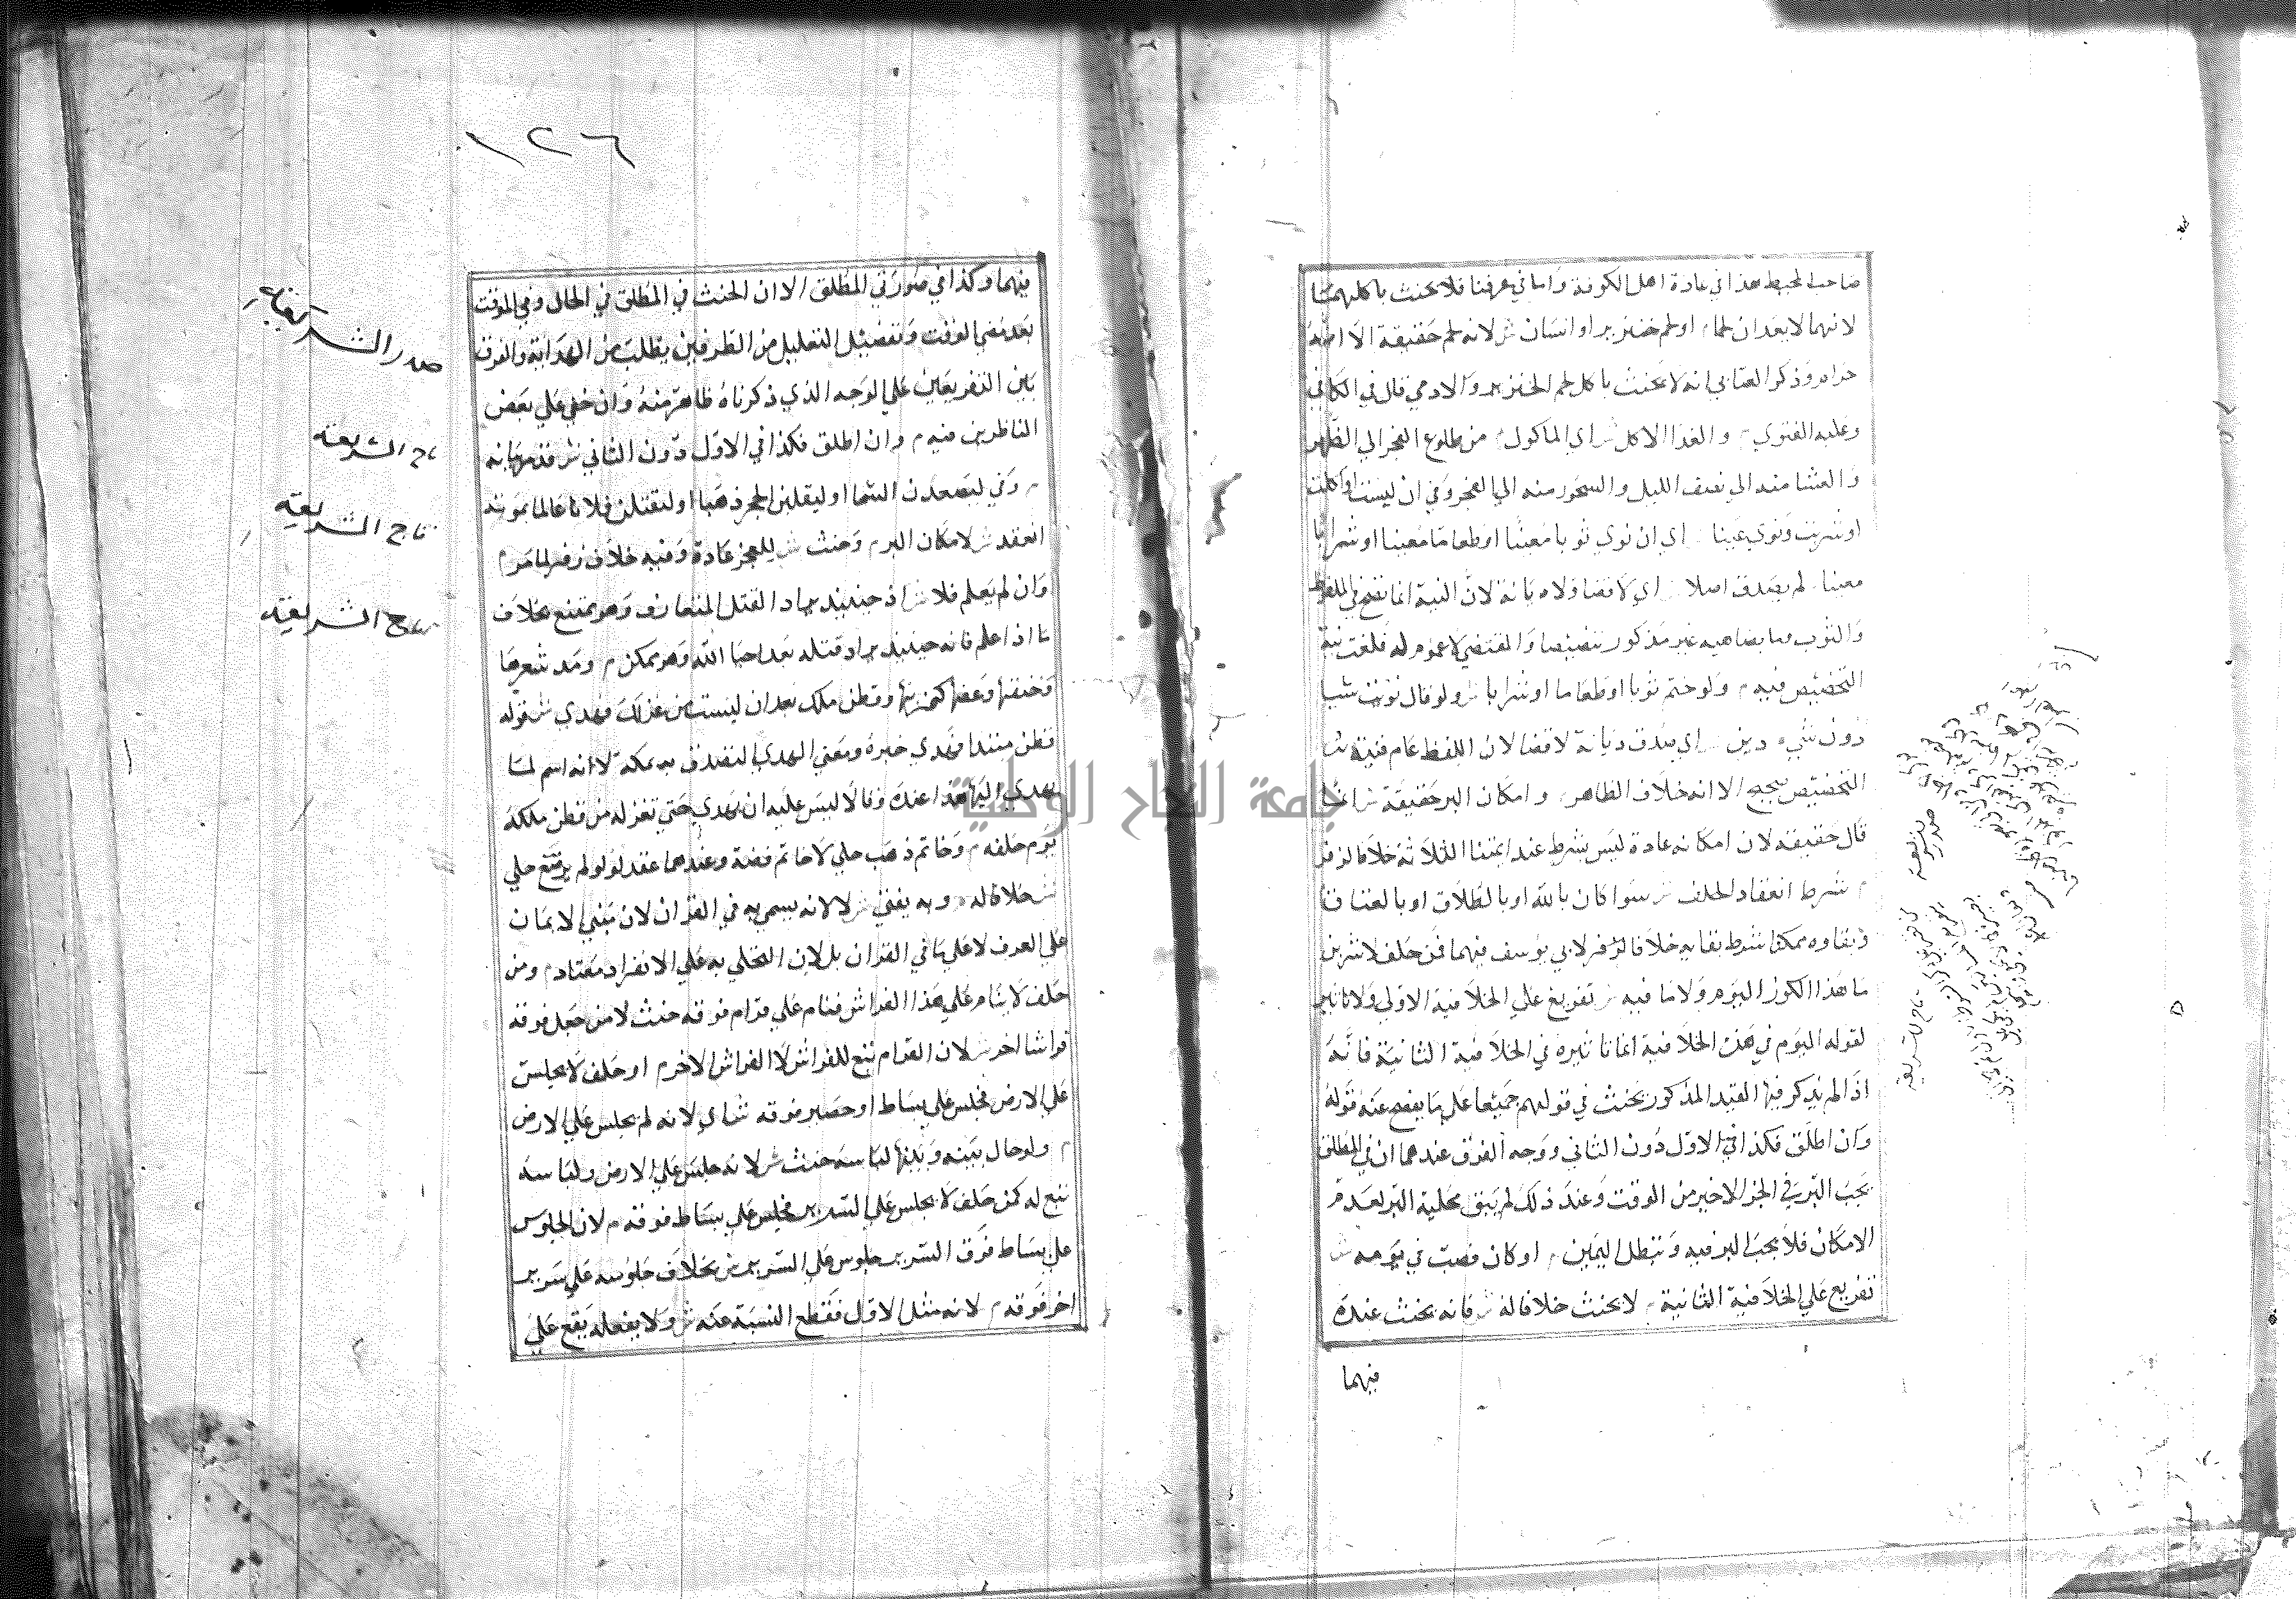 صاحب المحيط هذا في عادة اهل الكوفة واما في عرفنا فلا يحنث باكلهما
لانهما لا يعدان لحما م او لحم خنزير او انسان ش لانه لحم حقيقة الا انه
حرام وذكر العتابي انه لا يحنث باكل لحم الخنزير والادمي قال في الكافي
وعليه الفتوي م والغدا الاكل ش اي الماكول م من طلوع الفجر الي الظهر
والعشا منه الي نصف الليل والسحور منه الي الفجر وفي ان لبست او اكلت
او شربت ونوي عينا ش اي ان نوي ثوبا معينا او طعاما معينا او شرابا
معينا م لم يصدق اصلا ش اي لا قضا ولا ديانة لان النية انما تصح في الملفوظ
والثوب وما يضاهيه غير مذكور تنصيصا والمقتضي لا عموم له فلغت نية
التخصيص فيه م ولو ضم ثوبا او طعاما او شرابا ش ولو قال نويت شيا
دون شيء م دين ش اي يصدق ديانة لا قضا لان اللفظ عام فنية
التخصيص صحيح الا انه خلاف الظاهر م وامكان البر حقيقة ش انما
قال حقيقة لان امكانه عادة ليس بشرط عند ايمتنا الثلاثة خلافا لزفر
م شرط انعقاد الحلف ش سوا كان بالله او بالطلاق او بالعتاق
وبقاوه ممكنا شرط بقايه خلافا لزفر لابي يوسف فيهما فمن حلف لاشربن
ما هذا الكوز اليوم ولا ما فيه ش تفريع علي الخلافية الاولي ولا تاثير
لقوله اليوم في هذه الخلافية انما تاثيره في الخلافية الثانية فانه
اذا لم يذكر فيها القيد المذكور يحنث في قولهم جميعا علي ما يفصح عنه قوله
وان اطلق فكذا في الاول دون الثاني ووجه الفرق عندهما ان في المطلق
يجب البر في الجز الاخير من الوقت وعند ذلك لم يبق محلية البر لعدم
الامكان فلا يجب البر فيه وتبطل اليمين م او كان فصب في يومه ش
تفريع علي الخلافية الثانية م لا يحنث خلافا له ش فانه يحنث عنده
فيهما
صدر الشريعة
تاج الشريعة
١٢٦
فيهما وكذا في صورتي المطلق الا ان الحنث في المطلق في الحال وفي الموقت
بعد مضي الوقت وتفصيل التعليل من الطرفين يطلب من الهداية والفرق
بين التفريعين علي الوجه الذي ذكرناه ظاهر منه وان خفي علي بعض
الناظرين فيه م وان اطلق فكذا في الاول دون الثاني ش قد مر بيانه
م وفي ليصعدن السما او ليقلبن الحجر ذهبا او ليقتلن فلانا عالما بموته
انعقد ش لامكان البر م وحنث ش للعجز عادة وفيه خلاف زفر لما مر م
وان لم يعلم فلا ش اذ حينيذ يراد القتل المتعارف وهو ممتنع بخلاف
ما اذا علم فانه حينيذ يراد قتله بعد احيا الله وهو ممكن م ومد شعرها
وخنقها وعضها كضربها وقطن ملكه بعد ان لبست من غزلك فهدي ش قوله
قطن مبتدا وهدي خبره ومعني الهدي التصدق به بمكة لانه اسم لما
يهدي اليها هذا عنده وقالا ليس عليه ان يهدي حتي تغزله من قطن ملكه
يوم حلفه م وخاتم ذهب حلي لا خاتم فضة وعندهما عقد لولو لم يرصع حلي
ش خلافا له م وبه يفتي ش لا لانه يسمي به في القران لان مبني الايمان
علي العرف لا علي ما في القران بل لان التحلي به علي الانفراد معتاد م ومن
حلف لا ينام علي هذا الفراش فنام علي قرام فوقه حنث لا من جعل فوقه
فراشا اخر ش لان القرام تبع للفراش لا الفراش الاخر م او حلف لا يجلس
علي الارض فجلس علي بساط او حصير فوقه ش اي لانه لم يجلس علي الارض
م ولو حال بينه وبينها لباسه حنث ش لانه جلس علي الارض ولباسه
تبع له كمن حلف لا يجلس علي السرير فجلس علي بساط فوقه م لان الجلوس
علي بساط فوق السرير جلوس علي السرير ش بخلاف جلوسه علي سرير
اخر فوقه م لانه مثل الاول فقطع النسبة عنه ش ولا يفعله يقع علي
صدر الشريعة
تاج الشريعة
تاج الشريعة
تاج الشريعة
جامعة النجاح الوطنية